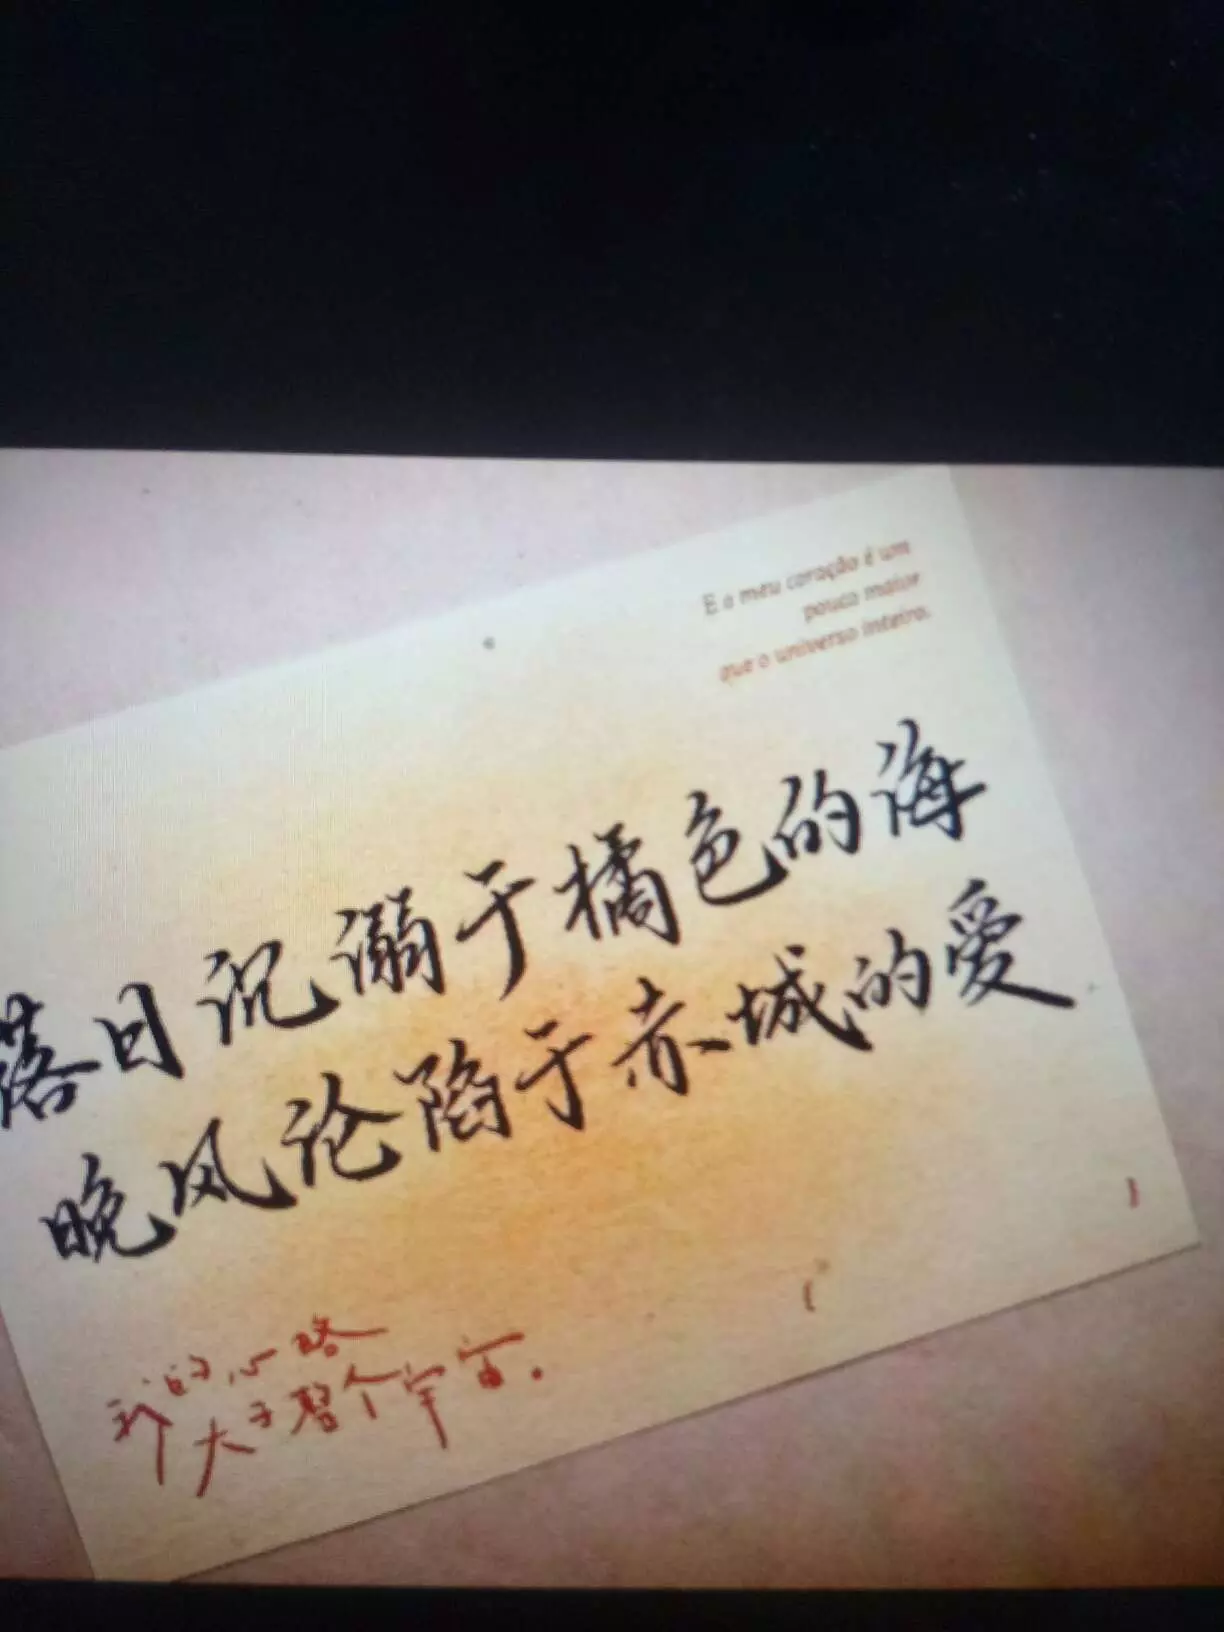 E o meu coração é um
pouco maior
que o universo inteiro.
落日沉溺于橘色的海
晚风沦陷于赤城的爱
我的心略
大于整个宇宙。